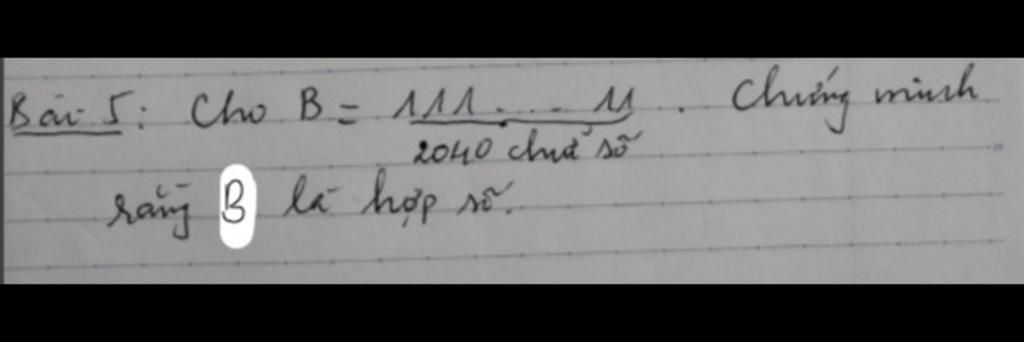 Bài 5: Cho B = 111... 11. Chứng minh
2040 chữ số
rằng B là hợp số.